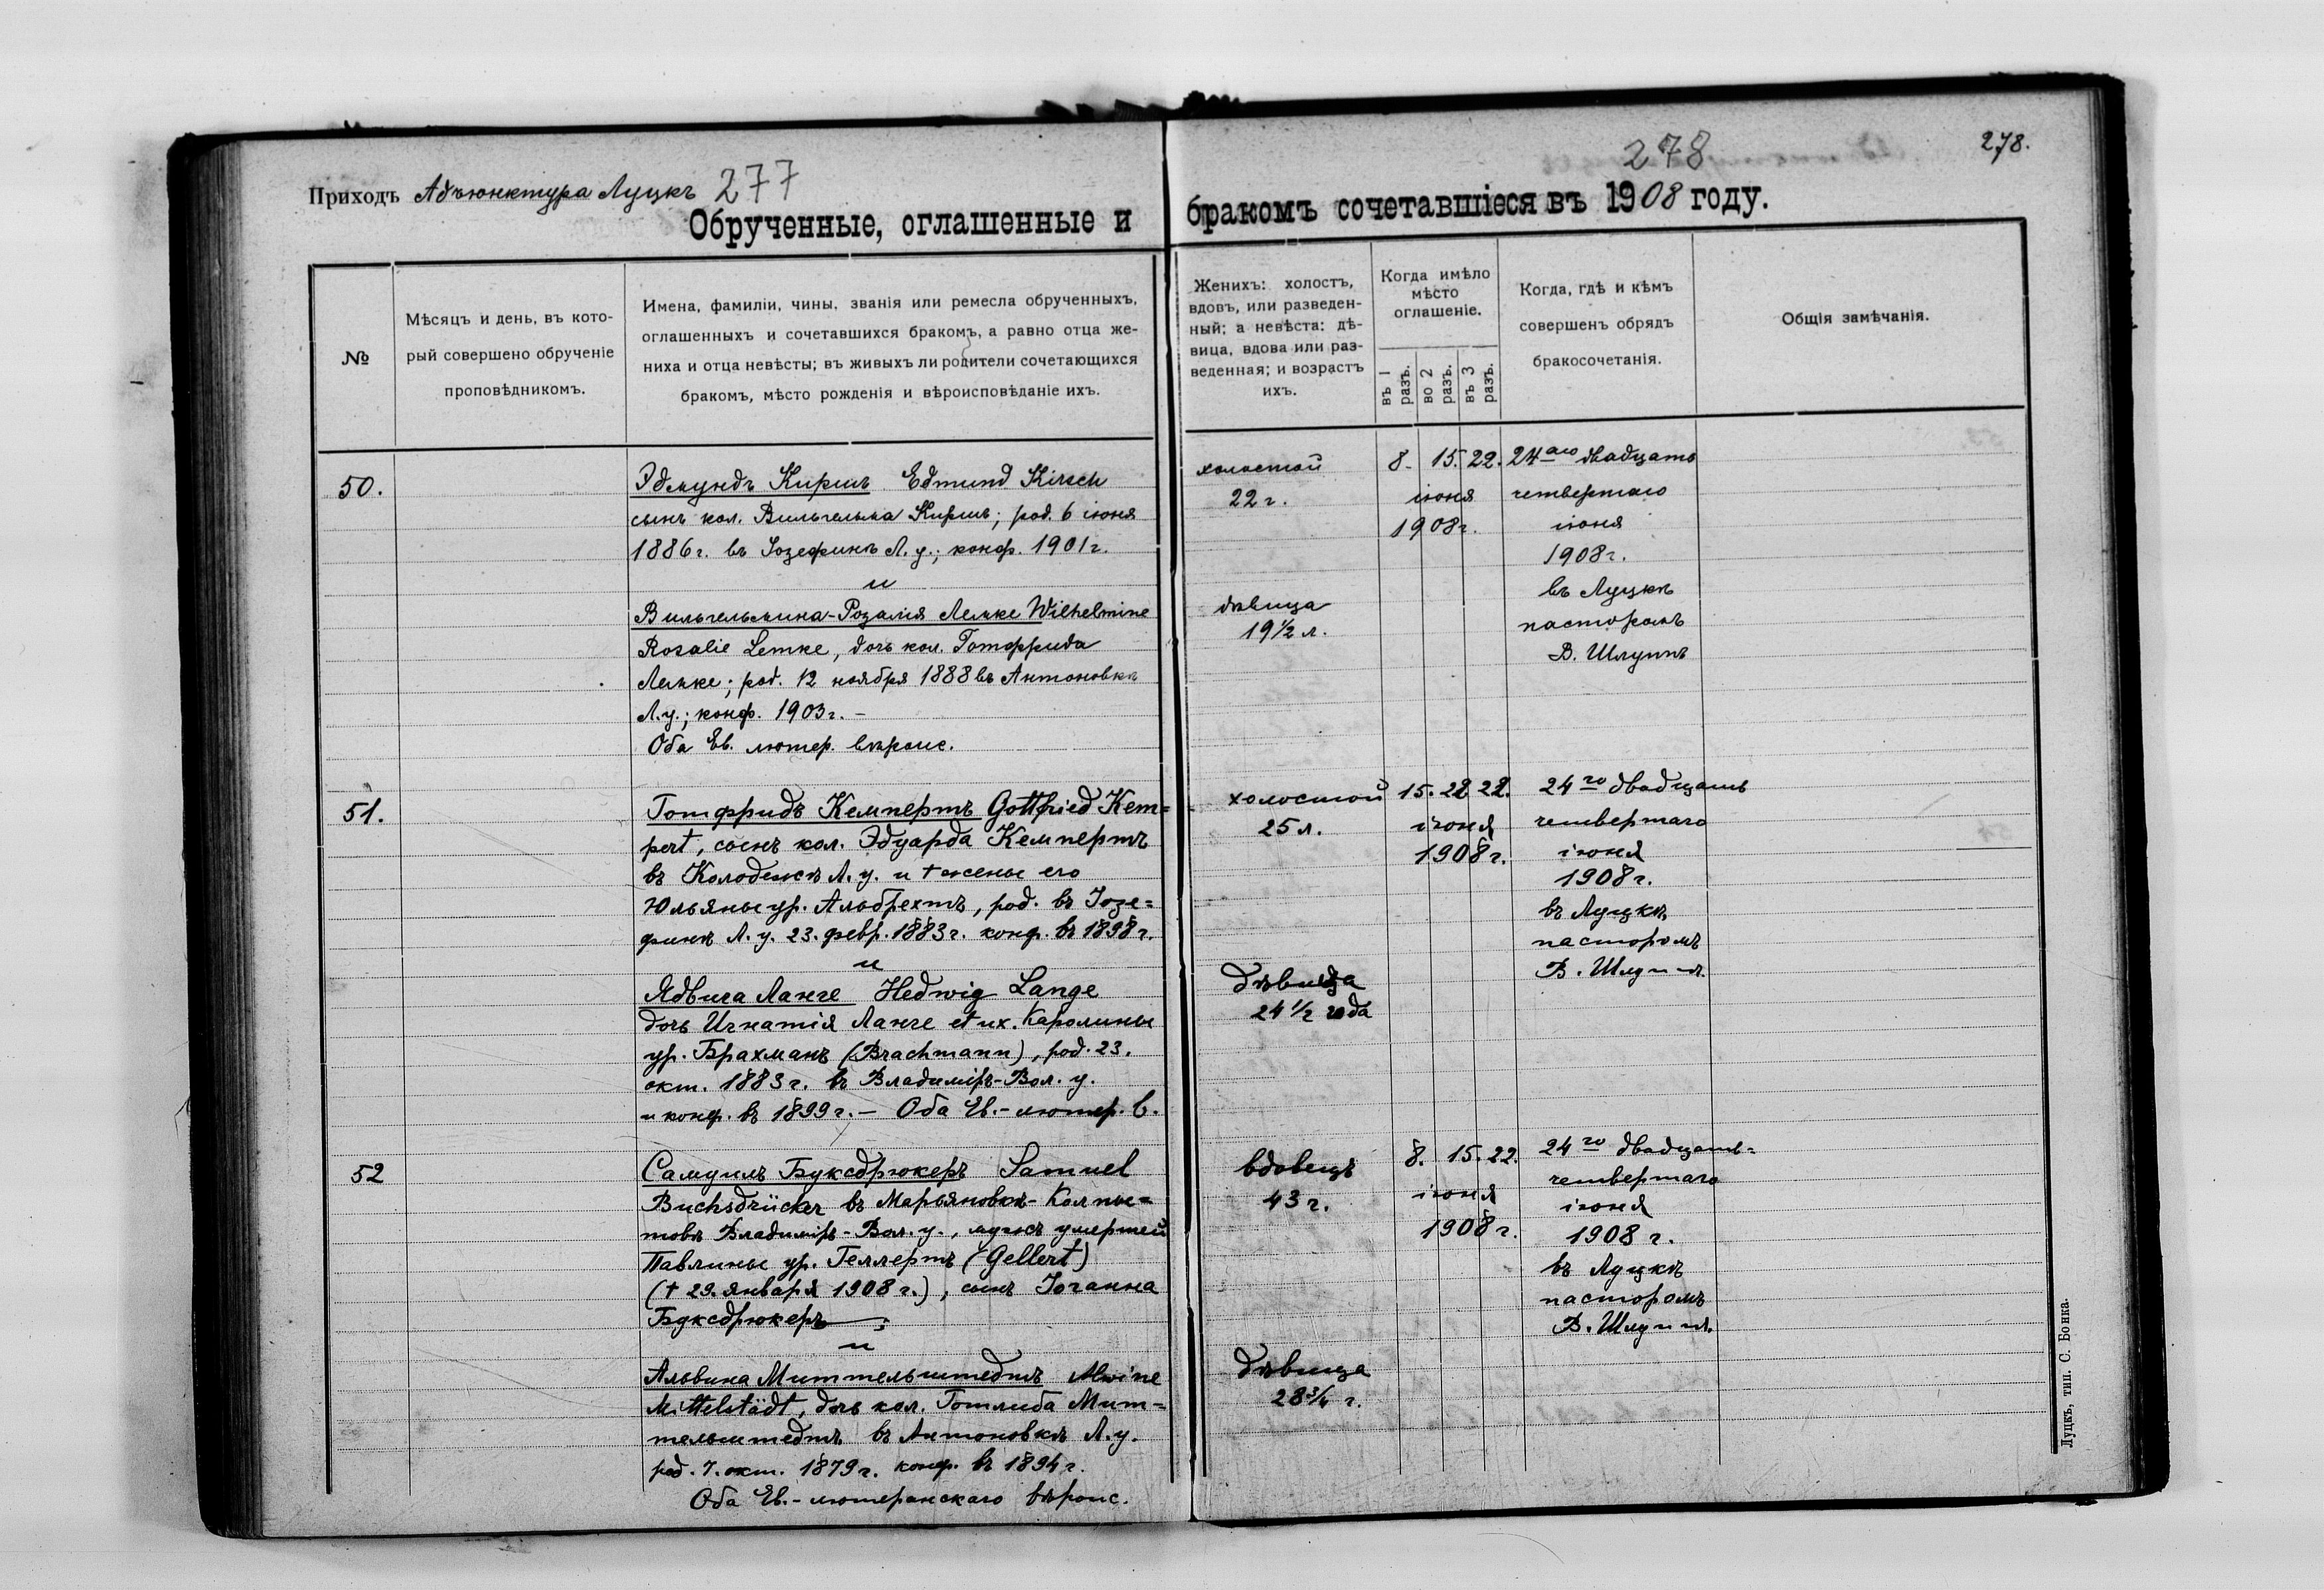 Приходъ Адъюнктура Луцкъ 277
Обрученные, оглашенные и
№
Мѣсяцъ и день, въ кото-
рый совершено обрученіе
проповѣдникомъ.
Имена, фамиліи, чины, званія или ремесла обрученныхъ,
оглашенныхъ и сочетавшихся бракомъ, а равно отца же-
ниха и отца невѣсты; въ живыхъ ли родители сочетающихся
бракомъ, мѣсто рожденія и вѣроисповѣданіе ихъ.
50.
Эдмундъ Киршъ Edmund Kirsch
сынъ кол. Вильгельма Киршъ; род. 6 іюня
1886г. въ Іозефинѣ Л. у.; конф. 1901г.
и
Вильгельмина-Розалія Лемке Wilhelmine
Rosalie Lemke, дочь кол. Готфрида
Лемке; род. 12 ноября 1888 въ Антоновкѣ
Л.у.; конф. 1903г. –
Оба Ев. лютер. вѣроис.
51.
Готфридъ Кемпертъ Gottfried Kem=
pert, сынъ кол. Эдуарда Кемпертъ
въ Колодежѣ Л. у. и † жены его
Юльяны ур. Альбрехтъ, род. въ Іозе=
финѣ Л. у. 23. февр. 1883г. конф. въ 1898г.
и
Ядвига Ланге Hedwig Lange
дочь Игнатія Ланге et ux. Каролины
ур. Брахманъ (Brachmann), род. 23.
окт. 1883г. въ Владимір-Вол. у.
и конф. въ 1899г. – Оба Ев.-лютер. в.
52
Самуилъ Буксдрюкеръ Samuel
Buchsdrücker въ Марьяновкѣ-Колпы=
товѣ Владимір-Вол. у., мужъ умершей
Павлины ур. Геллертъ (Gellert)
(† 29. января 1908г.), сынъ Іоганна
Буксдрюкеръ;
и
Альвина Миттельштедтъ Alwine
Mittelstädt, дочь кол. Готлиба Мит-
тельштедтъ въ Антоновкѣ Л. у.
род. 7. окт. 1879г. конф. въ 1894г.
Оба Ев.-лютеранскаго вѣроис.
278
278.
бракомъ сочетавшіеся въ 1908 году.
Женихъ: холостъ,
вдовъ, или разведен-
ный; а невѣста: дѣ-
вица, вдова или раз-
веденная; и возрастъ
ихъ.
Когда имѣло
мѣсто
оглашеніе.
въ 1 разъ.
во 2 разъ.
въ 3 разъ.
Когда, гдѣ и кѣмъ
совершенъ обрядъ
бракосочетанія.
Общія замѣчанія.
холостой
22 г.
8. 15. 22.
іюня
1908г.
24аго двадцать
четвертаго
іюня
1908г.
въ Луцкѣ
пасторомъ
В. Шлуппъ
дѣвица
19½ л.
холостой
25 л.
15. 22 22.
іюня
1908г.
24го двадцать
четвертаго
іюня
1908г.
въ Луцкѣ
пасторомъ
В. Шлуппъ.
Дѣвица
24½ года
вдовецъ
43 г.
8. 15. 22.
іюня
1908г.
24го двадцать=
четвертаго
іюня
1908 г.
въ Луцкѣ
пасторомъ
В. Шлуппъ.
Дѣвица
28¾ г.
Луцкъ, тип. С. Бонка.